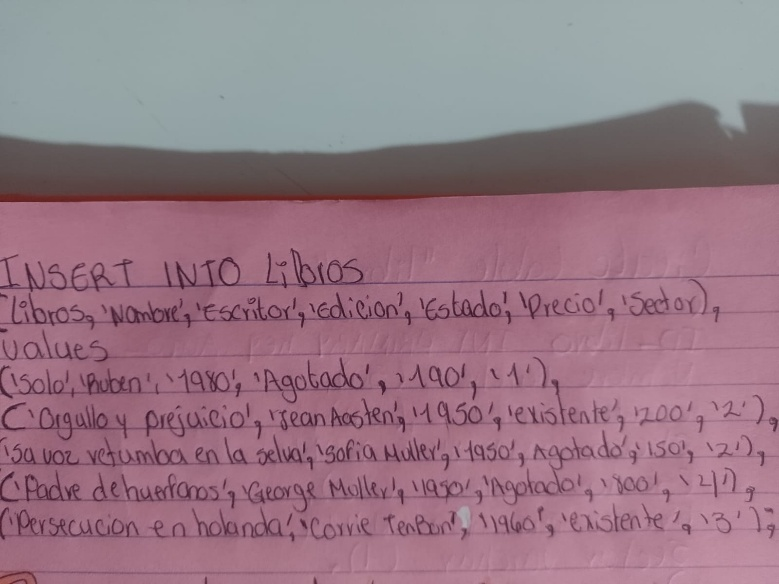 INSERT INTO Libros
(Libros, 'Nombre', 'Escritor', 'Edicion', 'Estado', 'Precio', 'Sector),
values
('Solo', 'Ruben', '1980', 'Agotado', '190', '1'),
('Orgullo y prejuicio', 'Jean Aosten', '1950', 'existente', '200', '2'),
('Sa voz retumba en la selva', 'Sofia Muller', '1950', Agotado', '150', '2'),
('Padre de huerfanos', 'George Muller', '1950', 'Agotado', '800', '4'),
('Persecucion en holanda', 'Corrie TenBon', '1960', 'existente', '3');